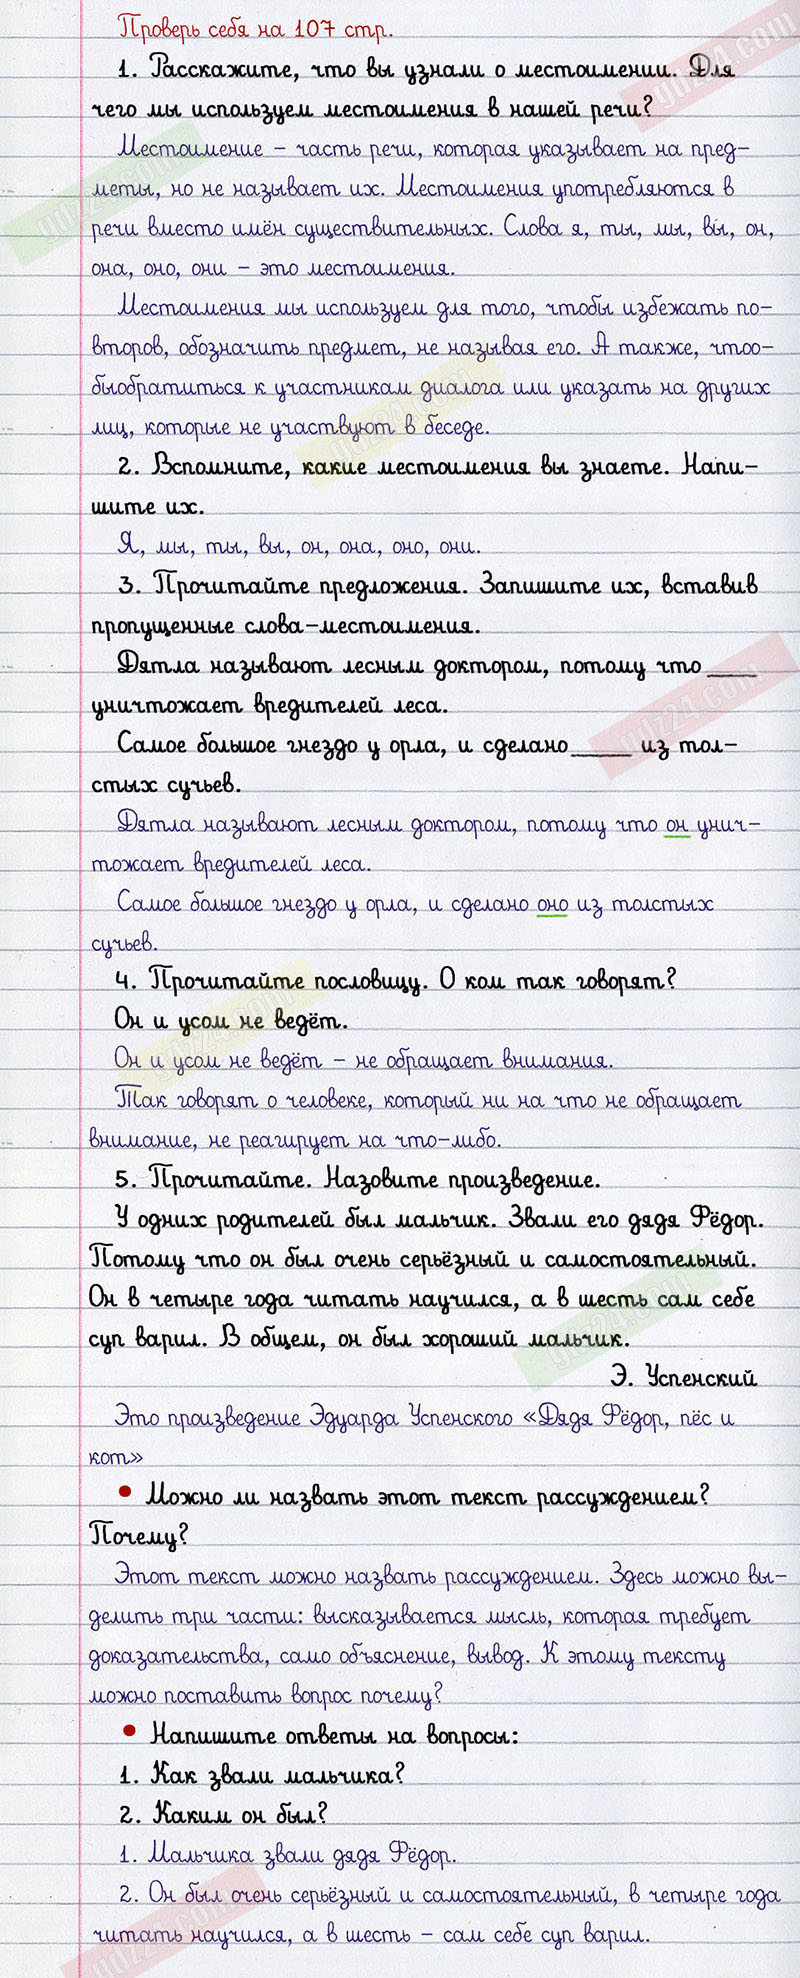 Проверь себя на 107 стр.
1. Расскажите, что вы узнали о местоимении. Для
чего мы используем местоимения в нашей речи?
Местоимение – часть речи, которая указывает на пред-
меты, но не называет их. Местоимения употребляются в
речи вместо имён существительных. Слова я, ты, мы, вы, он,
она, оно, они – это местоимения.
Местоимения мы используем для того, чтобы избежать по-
второв, обозначить предмет, не называя его. А также, чтоо-
быобратиться к участникам диалога или указать на других
лиц, которые не участвуют в беседе.
2. Вспомните, какие местоимения вы знаете. Напи-
шите их.
Я, мы, ты, вы, он, она, оно, они.
3. Прочитайте предложения. Запишите их, вставив
пропущенные слова-местоимения.
Дятла называют лесным доктором, потому что ____
уничтожает вредителей леса.
Самое большое гнездо у орла, и сделано _____ из тол-
стых сучьев.
Дятла называют лесным доктором, потому что он унич-
тожает вредителей леса.
Самое большое гнездо у орла, и сделано оно из толстых
сучьев.
4. Прочитайте пословицу. О ком так говорят?
Он и усом не ведёт.
Он и усом не ведёт – не обращает внимания.
Так говорят о человеке, который ни на что не обращает
внимание, не реагирует на что-либо.
5. Прочитайте. Назовите произведение.
У одних родителей был мальчик. Звали его дядя Фёдор.
Потому что он был очень серьёзный и самостоятельный.
Он в четыре года читать научился, а в шесть сам себе
суп варил. В общем, он был хороший мальчик.
Э. Успенский
Это произведение Эдуарда Успенского «Дядя Фёдор, пёс и
кот»
• Можно ли назвать этот текст рассуждением?
Почему?
Этот текст можно назвать рассуждением. Здесь можно вы-
делить три части: высказывается мысль, которая требует
доказательства, само объяснение, вывод. К этому тексту
можно поставить вопрос почему?
• Напишите ответы на вопросы:
1. Как звали мальчика?
2. Каким он был?
1. Мальчика звали дядя Фёдор.
2. Он был очень серьёзный и самостоятельный, в четыре года
читать научился, а в шесть – сам себе суп варил.